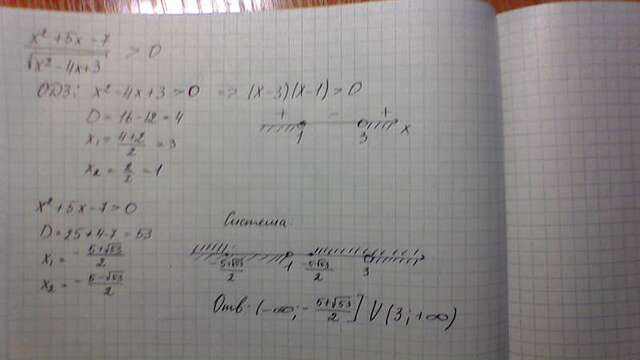 x² + 5x - 7 / √(x² - 4x + 3) > 0
ОДЗ: x² - 4x + 3 > 0 => (x - 3)(x - 1) > 0
D = 16 - 12 = 4
x₁ = 4+2 / 2 = 3
x₂ = 2/2 = 1
+ - +
1 3 x
x² + 5x - 7 > 0
D = 25 + 4·7 = 53
x₁ = - 5+√53 / 2
x₂ = - 5-√53 / 2
Система
- 5+√53 / 2 1 - 5-√53 / 2 3
Отв. (-∞; - 5+√53 / 2] ∪ (3; +∞)